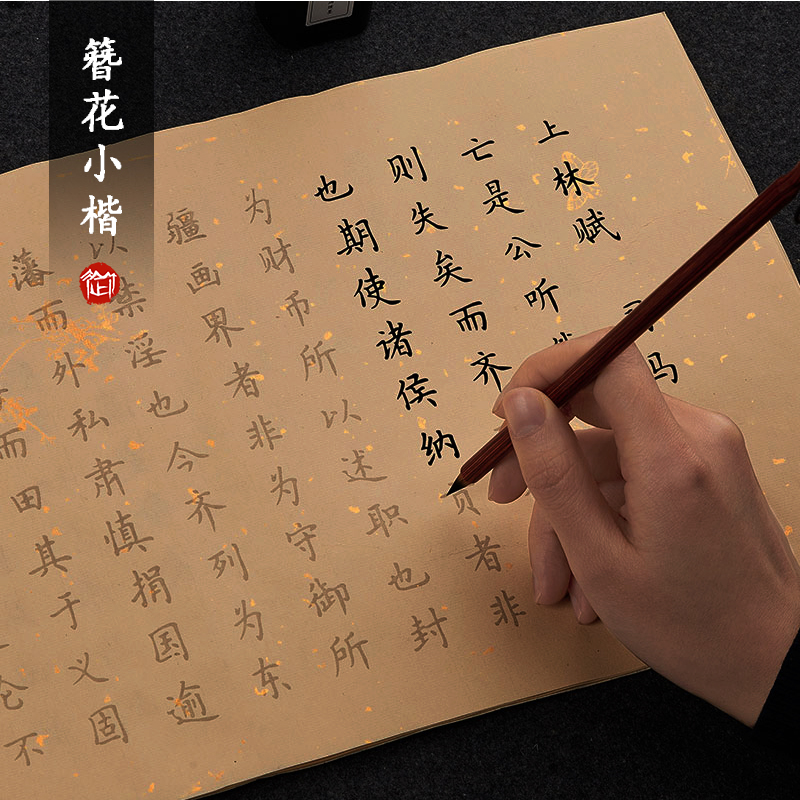 簪花小楷
上林赋 司马
亡是公听
则失矣而齐
也期使诸侯纳贡者非
为财币所以述职也封
疆画界者非为守御所
以禁淫也今齐列为东
藩而外私肃慎捐国逾
而田其于义固
不